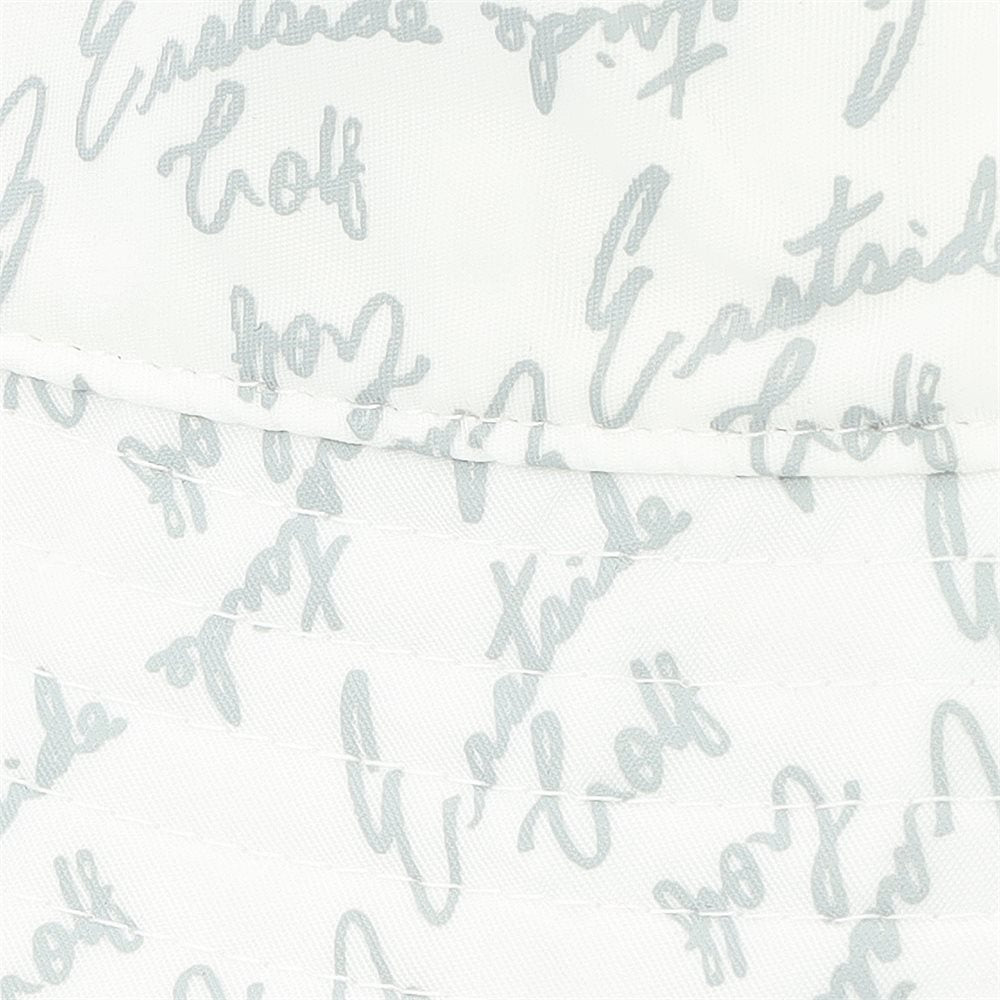 Eastside
Golf
Eastside
Golf
Golf
Eastside
Golf
Golf
Golf